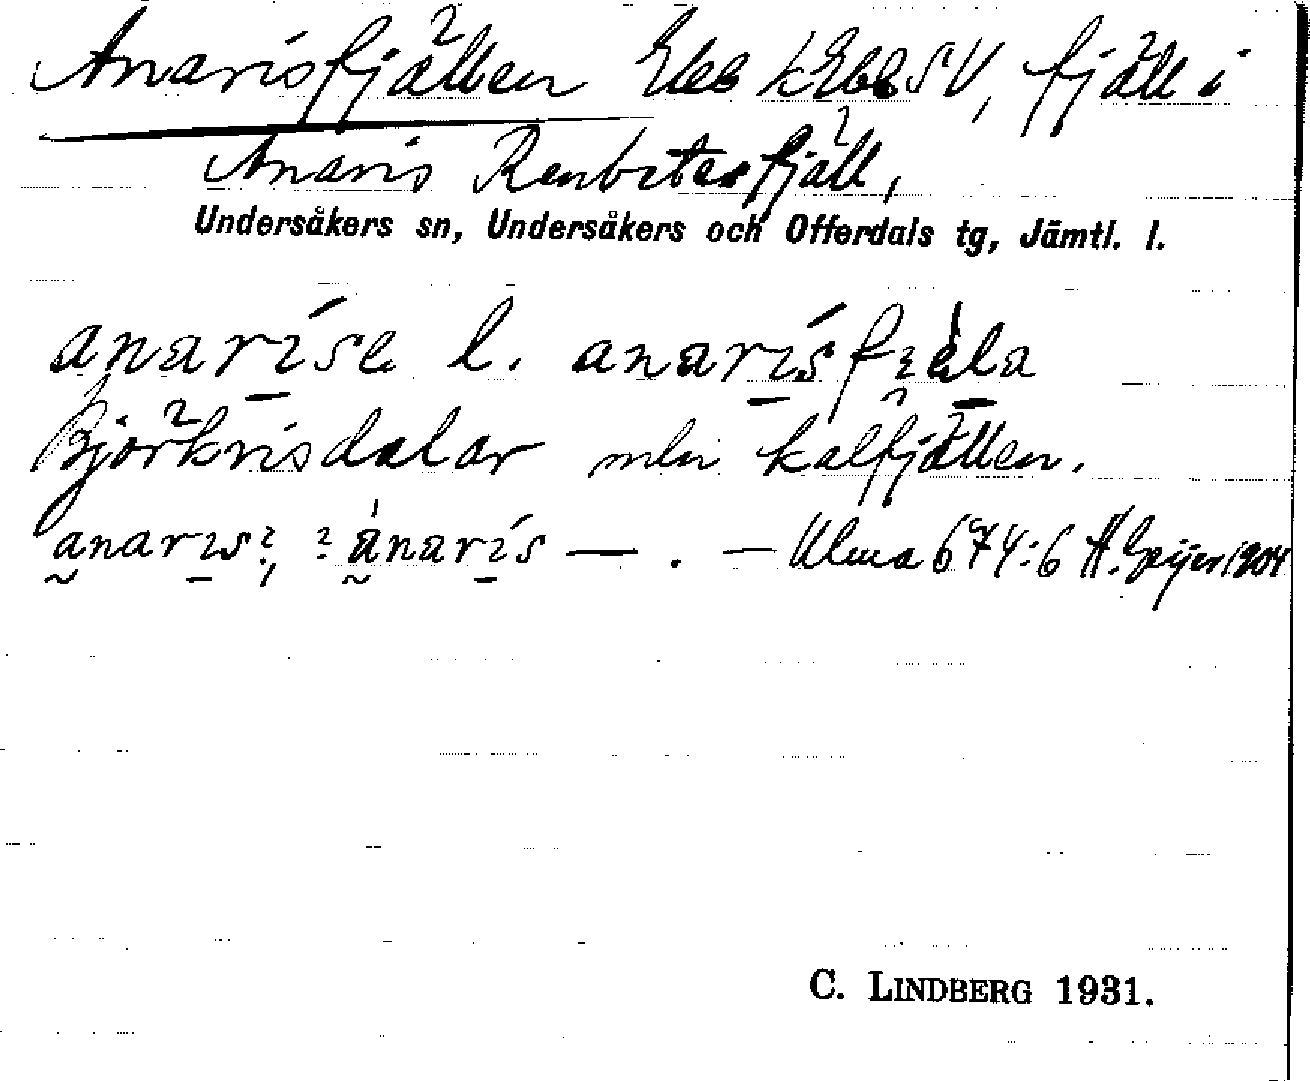 Anarisfjällen Eles kEbl SV, fjäll i
Anaris Renbetesfjäll,
Undersåkers sn, Undersåkers och Offerdals tg, Jämtl. l.
anaríse l. anarísfɛ̀la
Björkrisdalar mln kalfjällen.
anarɪs?, ?ánarís — . — Ulma 674:6 H. Geijer 1904
C. LINDBERG 1931.